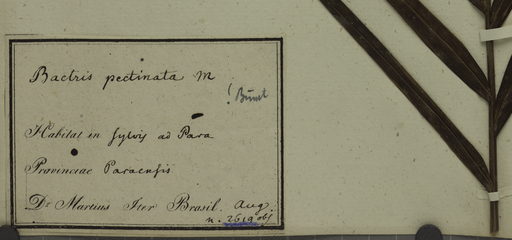 Bactris pectinata M
! Burret
Habitat in sylvis ad Para
Provinciae Paraensis
Dr Martius Iter Brasil. Aug.
n. 2619